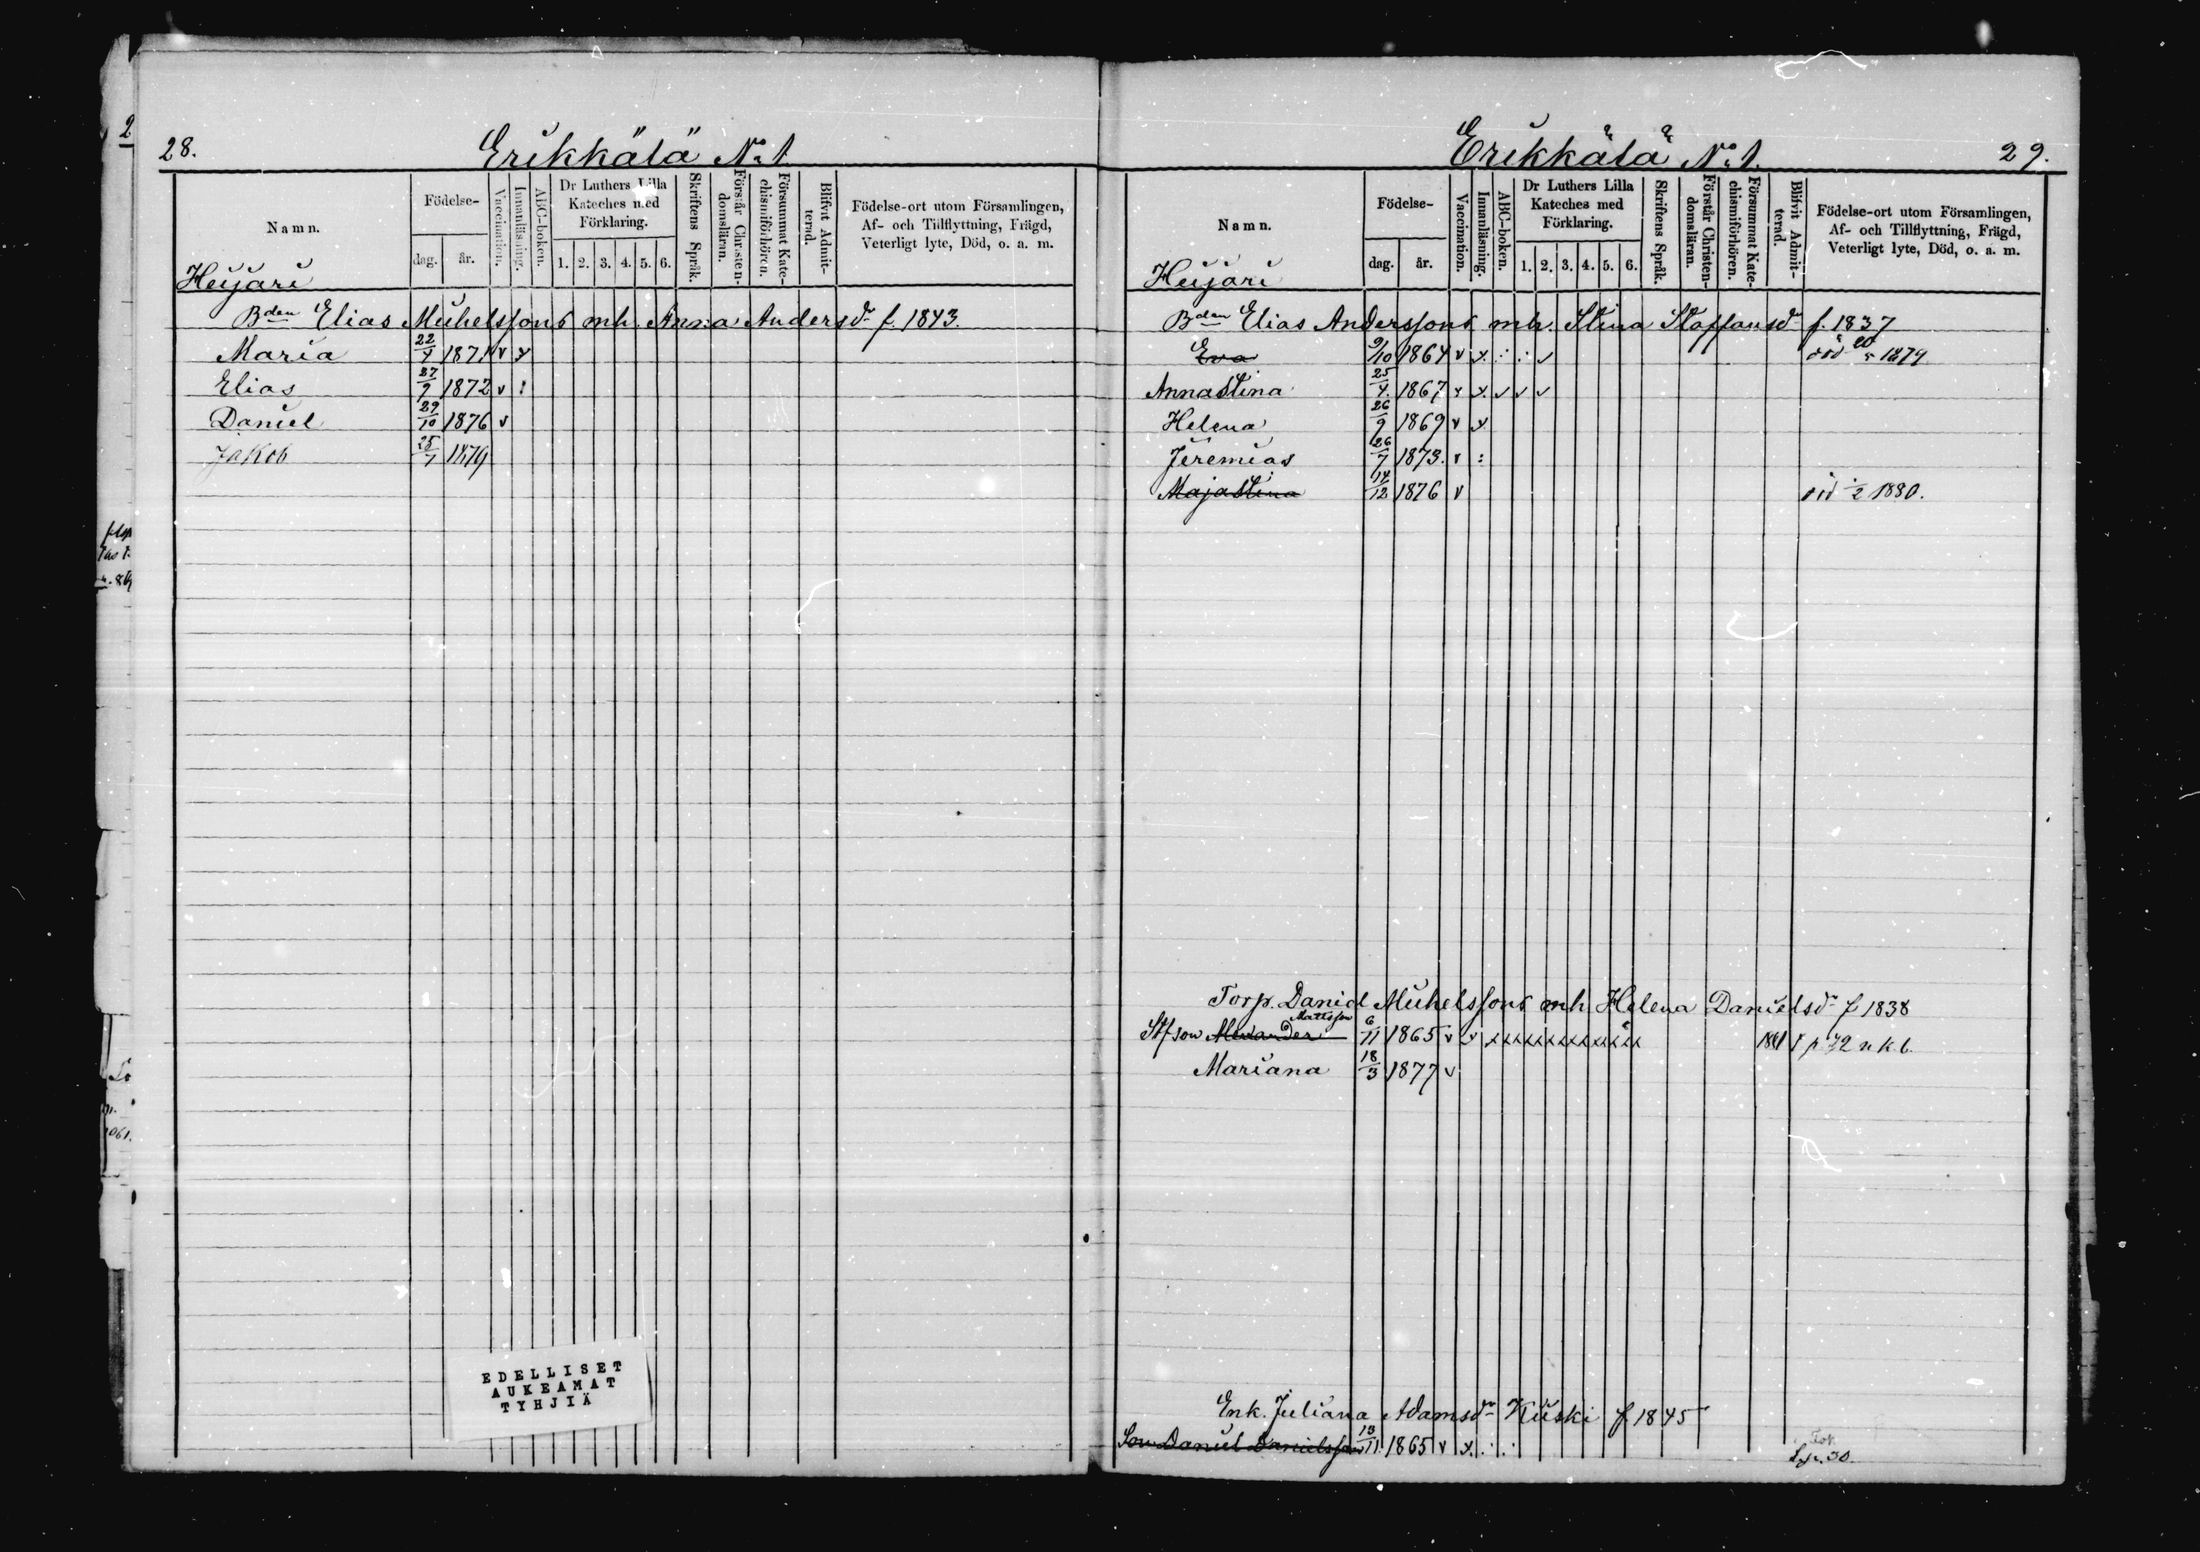 28.
Erikkälä No 1
Namn.
Födelse-
dag.
år.
Vaccination.
Innanläsning.
ABC-boken.
Dr Luthers Lilla
Kateches med
Förklaring.
1. 2. 3. 4. 5. 6.
Skriftens Språk.
Förstår Christen-
domsläran.
Försummat Kate-
chismiförhören.
Blifvit Admit-
terad.
Födelse-ort utom Församlingen,
Af- och Tillflyttning, Frägd,
Veterligt lyte, Död, o. a. m.
Heijari
Bden Elias Michelssons mh. Anna Andersdr f. 1843.
Maria 22/4 1871 v x
Elias 27/9 1872 v :
Daniel 29/10 1876 v
Jakob 25/7 1879
EDELLISET
AUKEAMAT
TYHJIÄ
Erikkälä No 1.
29.
Namn.
Födelse-
dag.
år.
Vaccination.
Innanläsning.
ABC-boken.
Dr Luthers Lilla
Kateches med
Förklaring.
1. 2. 3. 4. 5. 6.
Skriftens Språk.
Förstår Christen-
domsläran.
Försummat Kate-
chismiförhören.
Blifvit Admit-
terad.
Födelse-ort utom Församlingen,
Af- och Tillflyttning, Frägd,
Veterligt lyte, Död, o. a. m.
Heijari
Bden Elias Anderssons mh. Stina Staffansdr f. 1837
Eva 9/10 1864 v x ∴ ∴ v död 1879
Anna Stina 25/4 1867 v x v v v
Helena 26/9 1869 v x
Jeremias 26/7 1873. v :
Maja Stina 14/12 1876 v död 1/2 1880.
Torp. Daniel Michelssons mh Helena Danielsdr f 1838
Mattsson
Stfson Alexander 6/11 1865 v v x x x x x x x x x x 1881 p 72 n k b.
Mariana 18/3 1877 v
Enk. Juliana Adamsdr Kuski f. 1845
Son Daniel Danielsson 13/11 1865 v x ∴ ∴ 30.